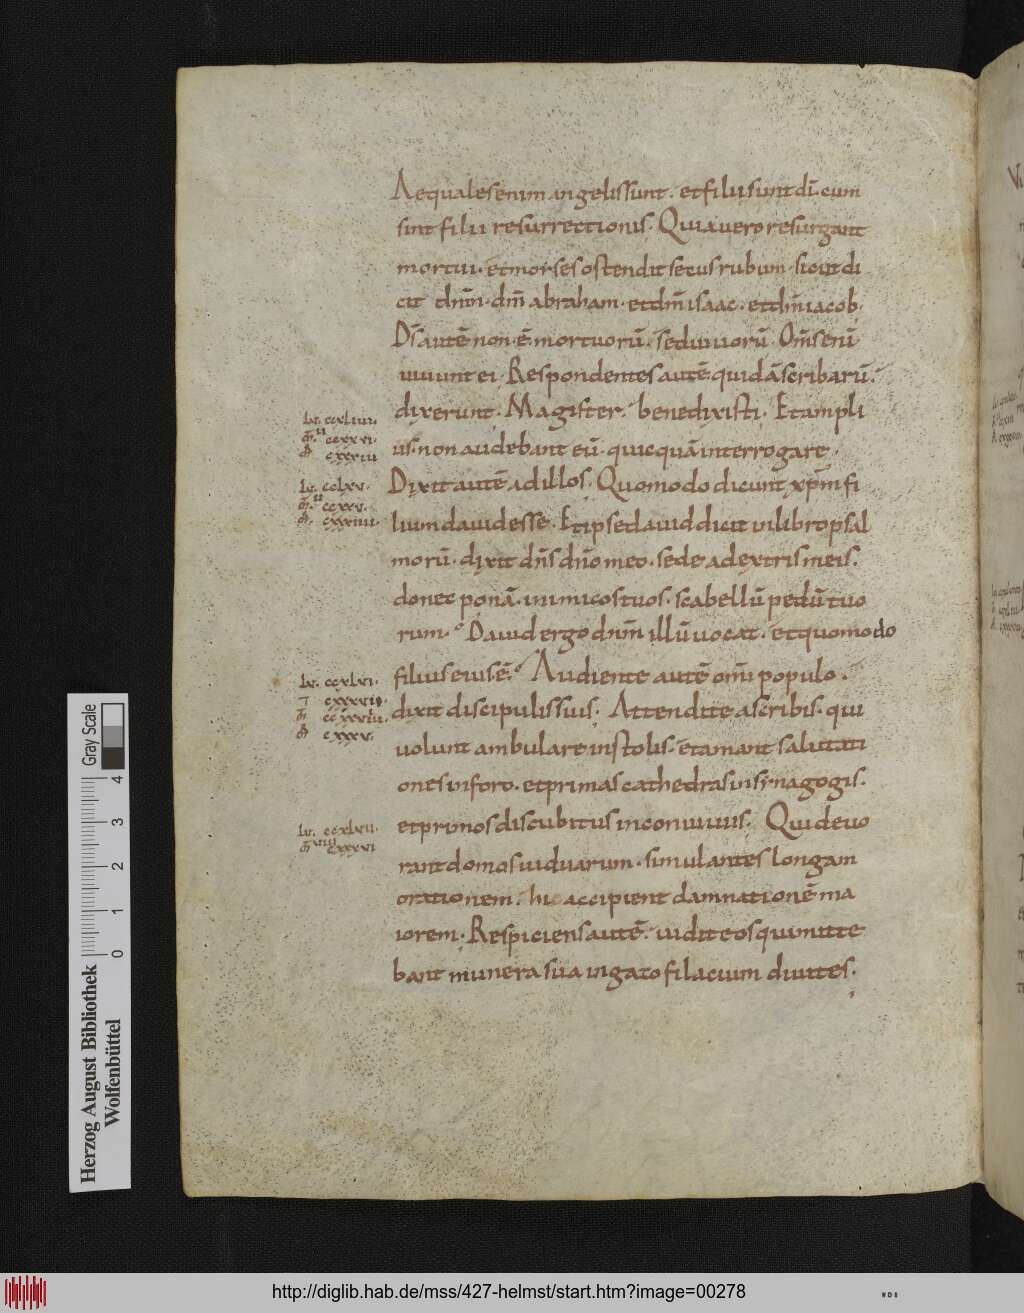 Aequales enim angelis sunt. et filii sunt dī. cum
sint filii resurrectionis. Quia uero resurgant
mortui. et moyses ostendit secus rubum. sicut di
cit dn̄m. dm̄ abraham. et dm̄ isaac. et dm̄ iacob.
Ds̄ autē non .ē. mortuorū. sed uiuorū. Om̄s enī
uiuunt ei. Respondentes autē quidā scribarū.
dixerunt. Magister. benedixisti. Et ampli
us. non audebant eū. quicquā interrogare.
Dixit autē ad illos. Quomodo dicunt xp̄m fi
lium dauid esse. Et ipse dauid dicit in libro psal
morū. dixit dn̄s dn̄o meo. sede a dextris meis.
donec ponā. inimicos tuos. scabellū pedū tuo
rum. Dauid ergo dn̄m illū uocat. et quomodo
filius eius .ē. Audiente autē om̄i populo.
dixit discipulis suis. Attendite a scribis. qui
uolunt ambulare in stolis. et amant salutati
ones in foro. et primas cathedras in synagogis.
et primos discubitus in conuiuiis. Qui deuo
rant domos uiduarum. simulantes longam
orationem. hi accipient damnationē ma
iorem. Respiciens autē. uidit eos qui mitte
bant munera sua in gazofilacium diuites.
Lu. ccxliiii.
ccxxxvi.
cxxxiii
Lu. cclxv.
ccxxv.
cxxxiiii.
Lu. ccxlvi.
cxxxv.
Lu. ccxlvii.
cxxxvi
Gray Scale
0 1 2 3 4
Herzog August Bibliothek
Wolfenbüttel
http://diglib.hab.de/mss/427-helmst/start.htm?image=00278